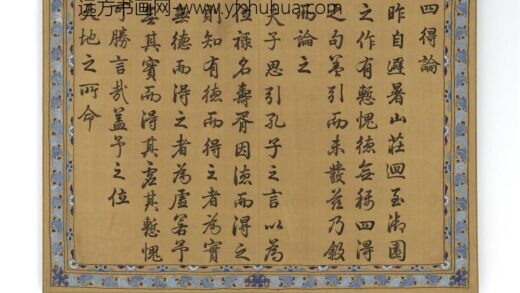 远方书画网-www.yfshuhua.com
四得論
昨自避暑山莊迴至御園
之作有慙愧德無稱四得
之句蓋引而未發茲乃敘
而論之
夫子思引孔子之言以為
位祿名壽胥因德而得之
則知有德而得之者為實
無德而得之者為虛若予
無其實而得其虛其慙愧
勝言哉蓋予之位
天地之所命